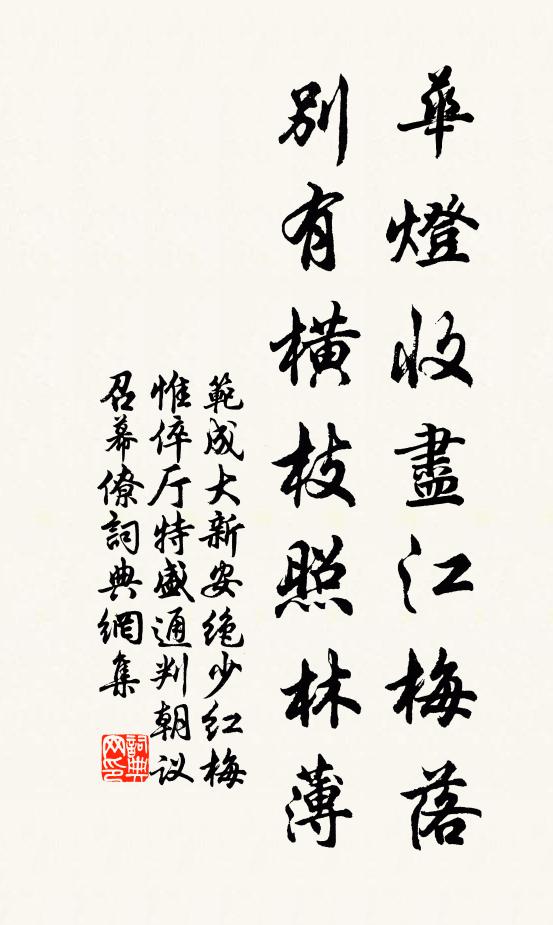 華燈收盡江梅落
別有橫枝照林薄
範成大新安绝少红梅
惟倅厅特盛通判朝议
召幕僚詞典網集
詞典網印